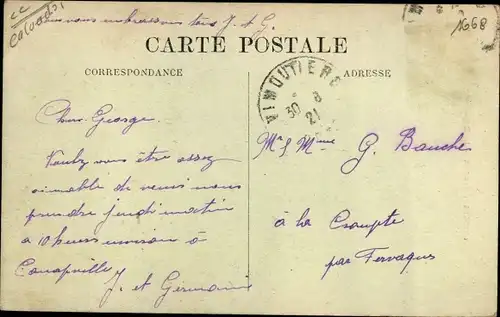 cc
Calvados
1668
nous embrassons tous J. et G.
CARTE POSTALE
CORRESPONDANCE
ADRESSE
VIMOUTIERS
30 3
21
Cher George.
Voulez vous être assez
aimable de venir nous
prendre jeudi matin
a 10 heures environ à
Canapville
J. et Germaine
Mr & Mme G. Bauche
à la Croupte
par Fervaques